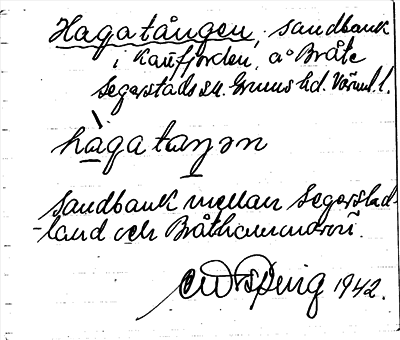 Hagatången, sandbank
i Kaufjorden, a° Bråte
Segerstads sn. Grums hd. Värml. l.
hàgataŋən
sandbank mellan Segerstad-
-land och Bråthammaren.
1942.